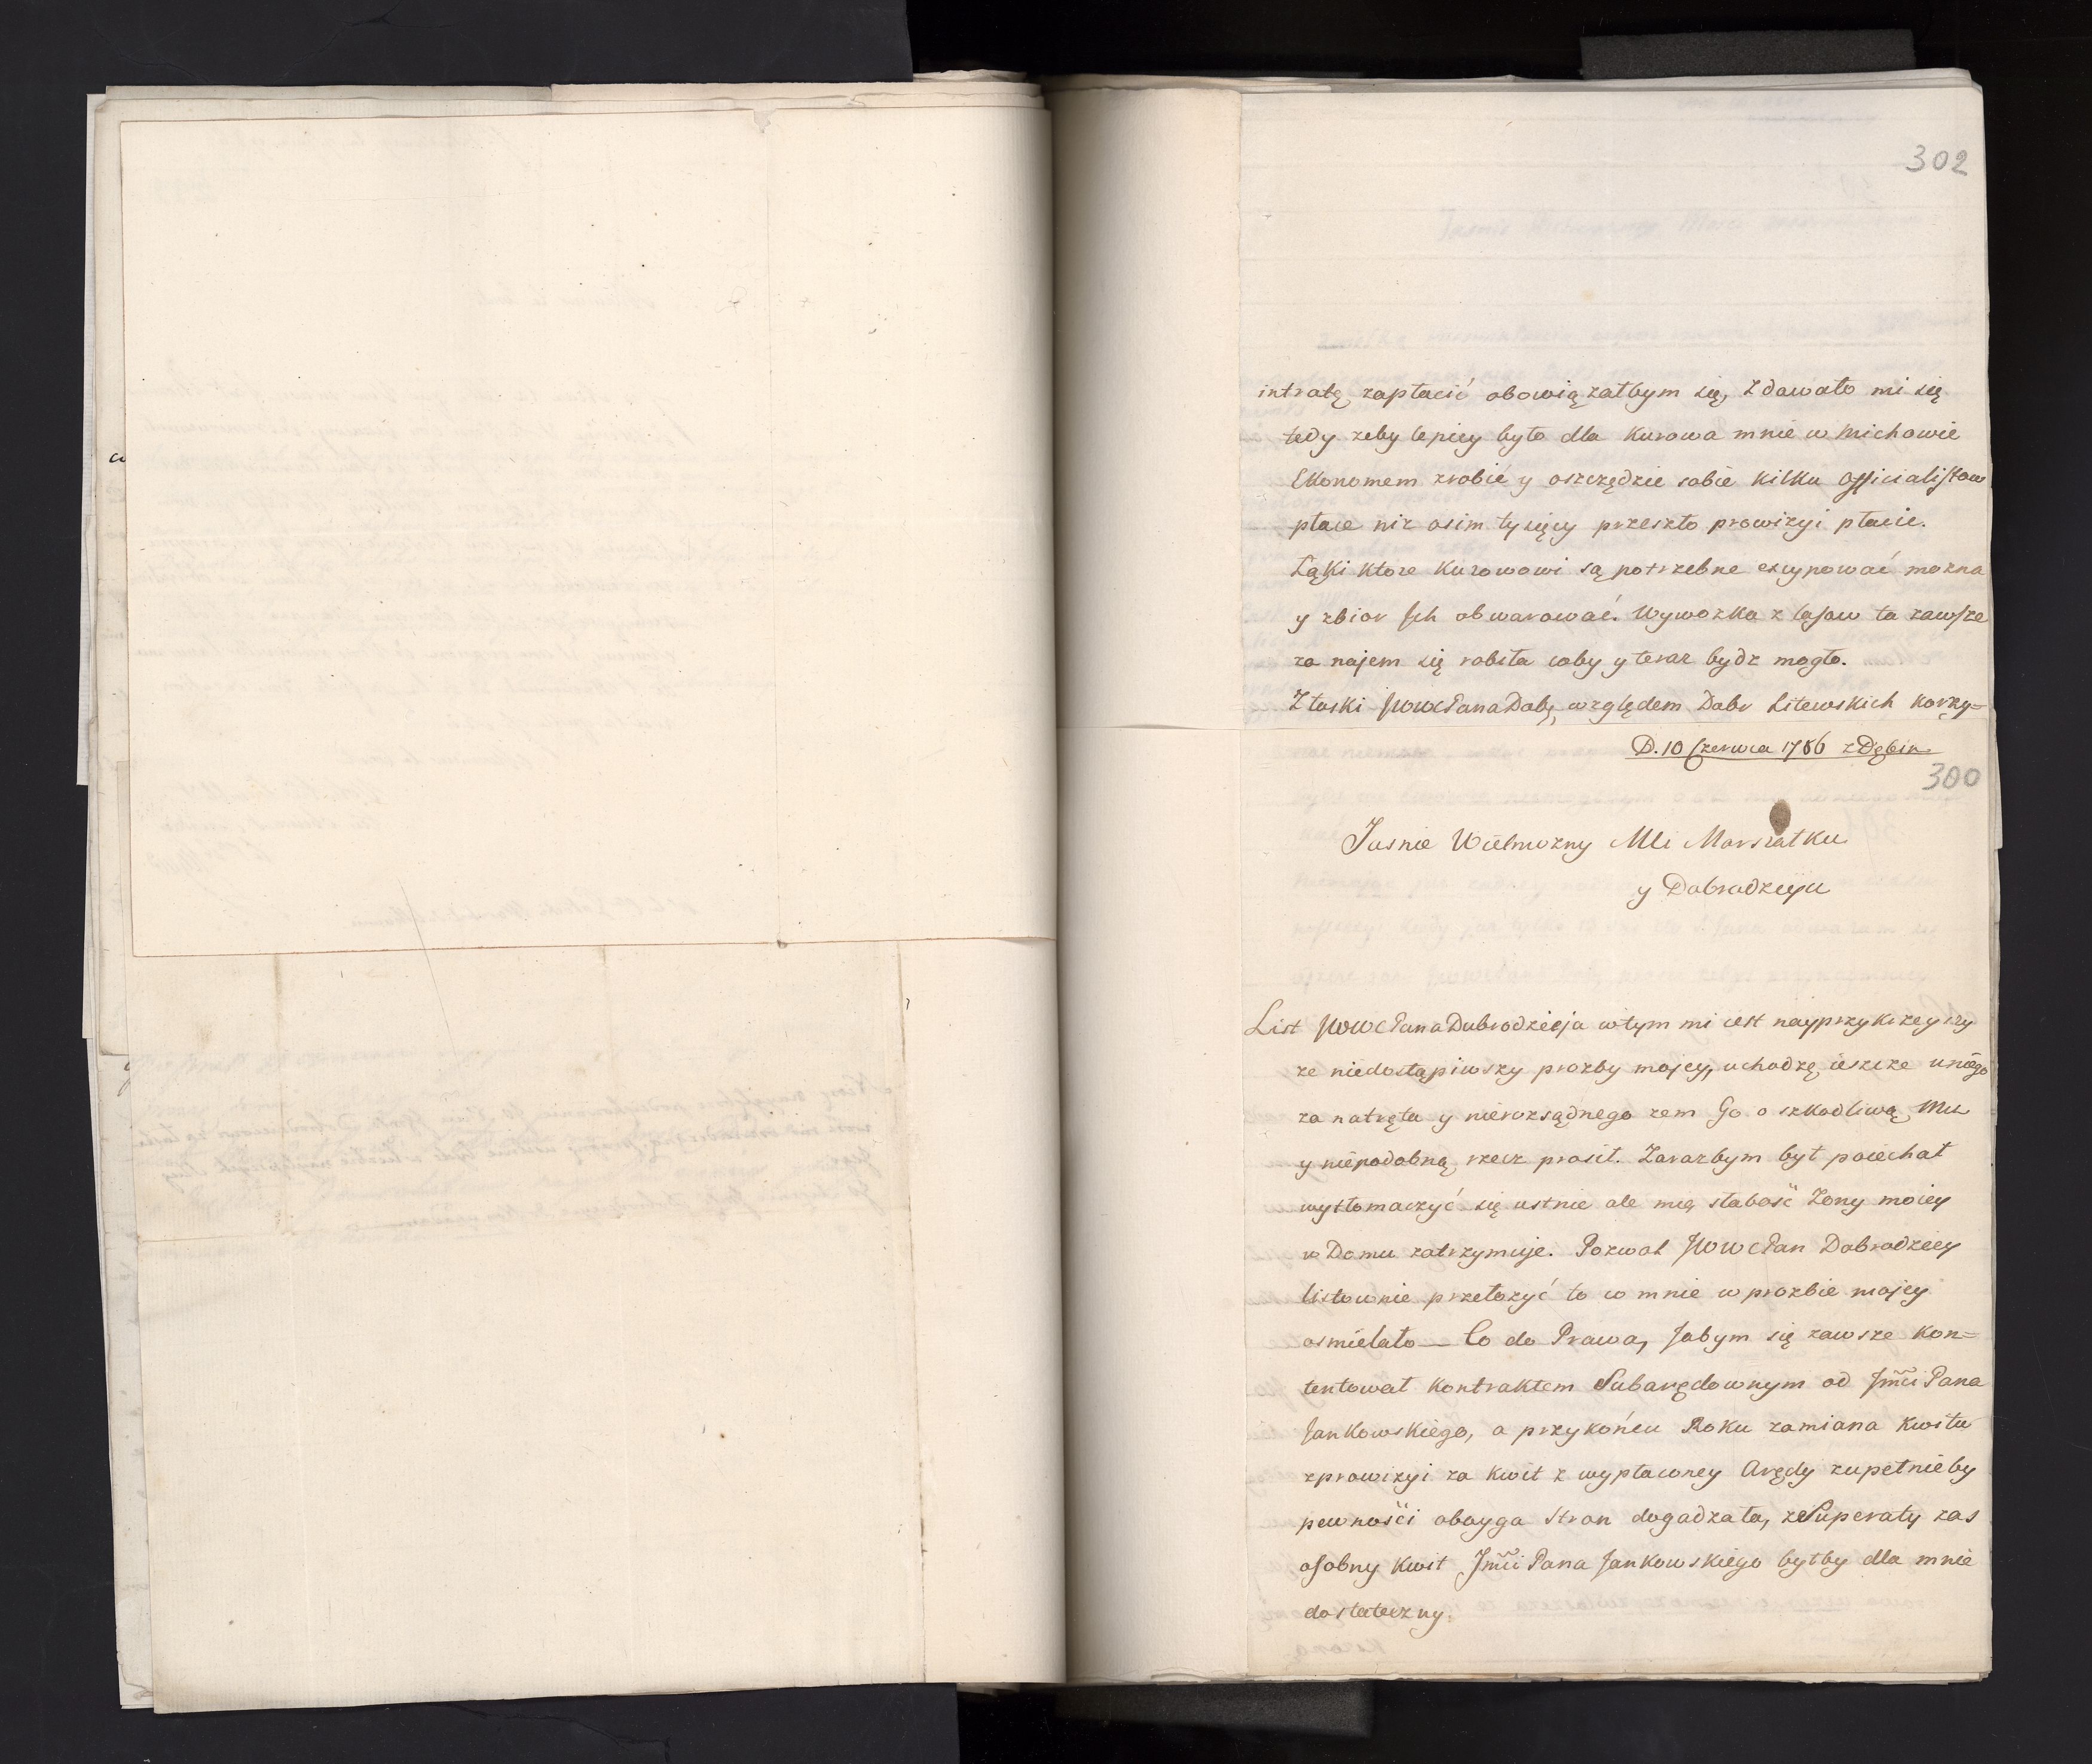 302
intratę zapłacić obowiązałbym się, zdawało mi się
tedy zeby lepiey było dla Kurowa mnie w Michowie
Ekonomem zrobić y oszczędzic sobie kilku Officialistow
płace niz osim tysięcy przeszło prowizyi płacic.
Łąki ktore Kurowowi są potrzebne excypować mozna
y zbior Jch obwarować. Wywozka z lasow ta zawsze
za najem się robiła coby y teraz bydz mogło.
Z łaski JWWcPana Dobę względem Dobr Litewskich korzy=
D. 10 Czerwca 1786 z Dębin
300
Jasnie Wielmozny Mci Marszałku
y Dobrodzieju
List JWWcPana Dobrodzieja w tym mi iest nayprzykrzeyszy
ze niedostąpiwszy prozby mojey, uchodzę ieszcze u niego
za natręta y nierozsądnego zem Go o szkodliwą Mu
y niepodobną rzecz prosił. Zarazbym był poiechał
wytłomaczyć się ustnie ale mię słabość Zony moiey
w Domu zatrzymuje. Pozwol JWWcPan Dobrodziey
listownie przełozyć to co mnie w prozbie mojey
osmielało — Co do Prawa, Jabym się zawsze kon=
tentował kontraktem Subarędownym od Jmci Pana
Jankowskiego, a przykońcu Roku zamiana kwitu
z prowizyi za kwit z wypłaconey Arędy zupełnieby
pewności oboyga Stron dogadzała, z Superaty zas
osobny kwit Jmci Pana Jankowskiego byłby dla mnie
dostateczny.